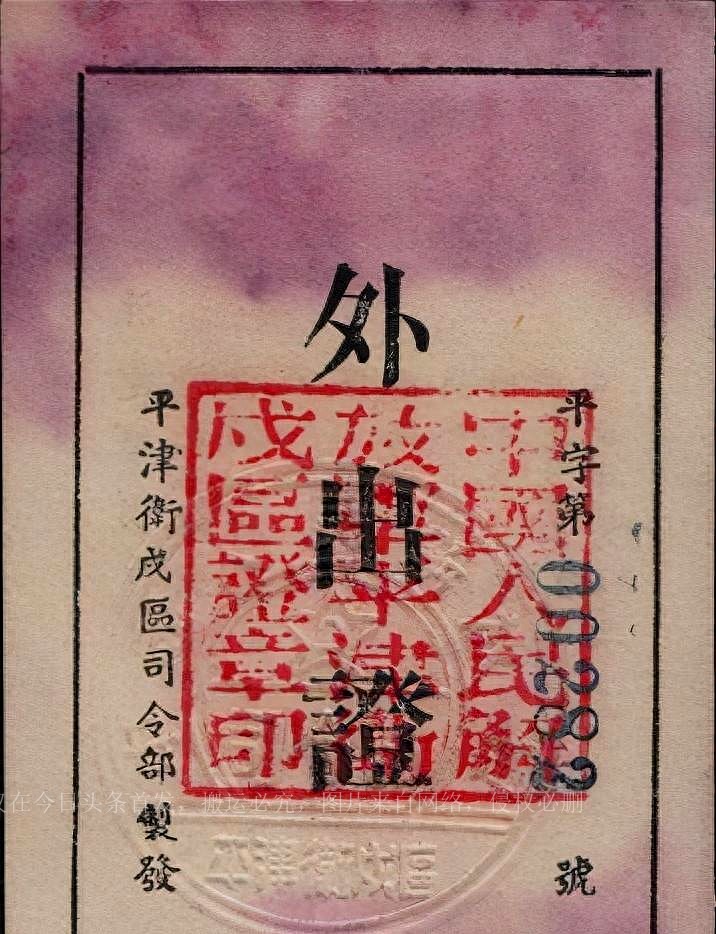 平字第00282號
外出證
平津衛戍區司令部製發
中國人民解
放軍平津衛
戍區證章印
平津衛戍區
仅在今日头条首发，搬运必究，图片来自网络，侵权必删